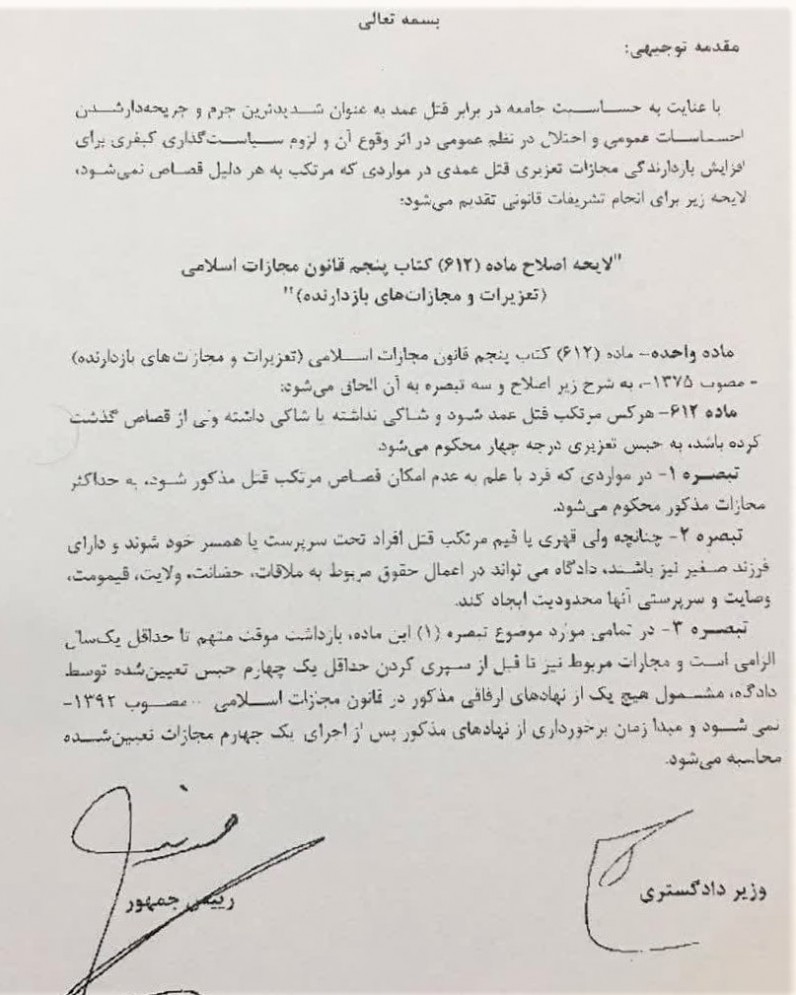 بسمه تعالی
مقدمه توجیهی:
با عنایت به حساسیت جامعه در برابر قتل عمد به عنوان شدیدترین جرم و جریحه‌دارشدن
احساسات عمومی و اختلال در نظم عمومی در اثر وقوع آن و لزوم سیاست‌گذاری کیفری برای
افزایش بازدارندگی مجازات تعزیری قتل عمدی در مواردی که مرتکب به هر دلیل قصاص نمی‌شود،
لایحه زیر برای انجام تشریفات قانونی تقدیم می‌شود:
"لایحه اصلاح ماده (۶۱۲) کتاب پنجم قانون مجازات اسلامی
(تعزیرات و مجازات‌های بازدارنده)"
ماده واحده- ماده (۶۱۲) کتاب پنجم قانون مجازات اسلامی (تعزیرات و مجازت‌های بازدارنده)
- مصوب ۱۳۷۵-، به شرح زیر اصلاح و سه تبصره به آن الحاق می‌شود:
ماده ۶۱۲- هرکس مرتکب قتل عمد شود و شاکی نداشته یا شاکی داشته ولی از قصاص گذشت
کرده باشد، به حبس تعزیری درجه چهار محکوم می‌شود.
تبصره ۱- در مواردی که فرد با علم به عدم امکان قصاص مرتکب قتل مذکور شود، به حداکثر
مجازات مذکور محکوم می‌شود.
تبصره ۲- چنانچه ولی قهری یا قیم مرتکب قتل افراد تحت سرپرست یا همسر خود شوند و دارای
فرزند صغیر نیز باشند، دادگاه می تواند در اعمال حقوق مربوط به ملاقات، حضانت، ولایت، قیمومت،
وصایت و سرپرستی آنها محدودیت ایجاد کند.
تبصره ۳- در تمامی موارد موضوع تبصره (۱) این ماده، بازداشت موقت متهم تا حداقل یک‌سال
الزامی است و مجازات مربوط نیز تا قبل از سپری کردن حداقل یک چهارم حبس تعیین‌شده توسط
دادگاه، مشمول هیچ یک از نهادهای ارفاقی مذکور در قانون مجازات اسلامی - مصوب ۱۳۹۲-
نمی شود و مبدا زمان برخورداری از نهادهای مذکور پس از اجرای یک چهارم مجازات تعیین‌شده
محاسبه می‌شود.
وزیر دادگستری
رییس جمهور